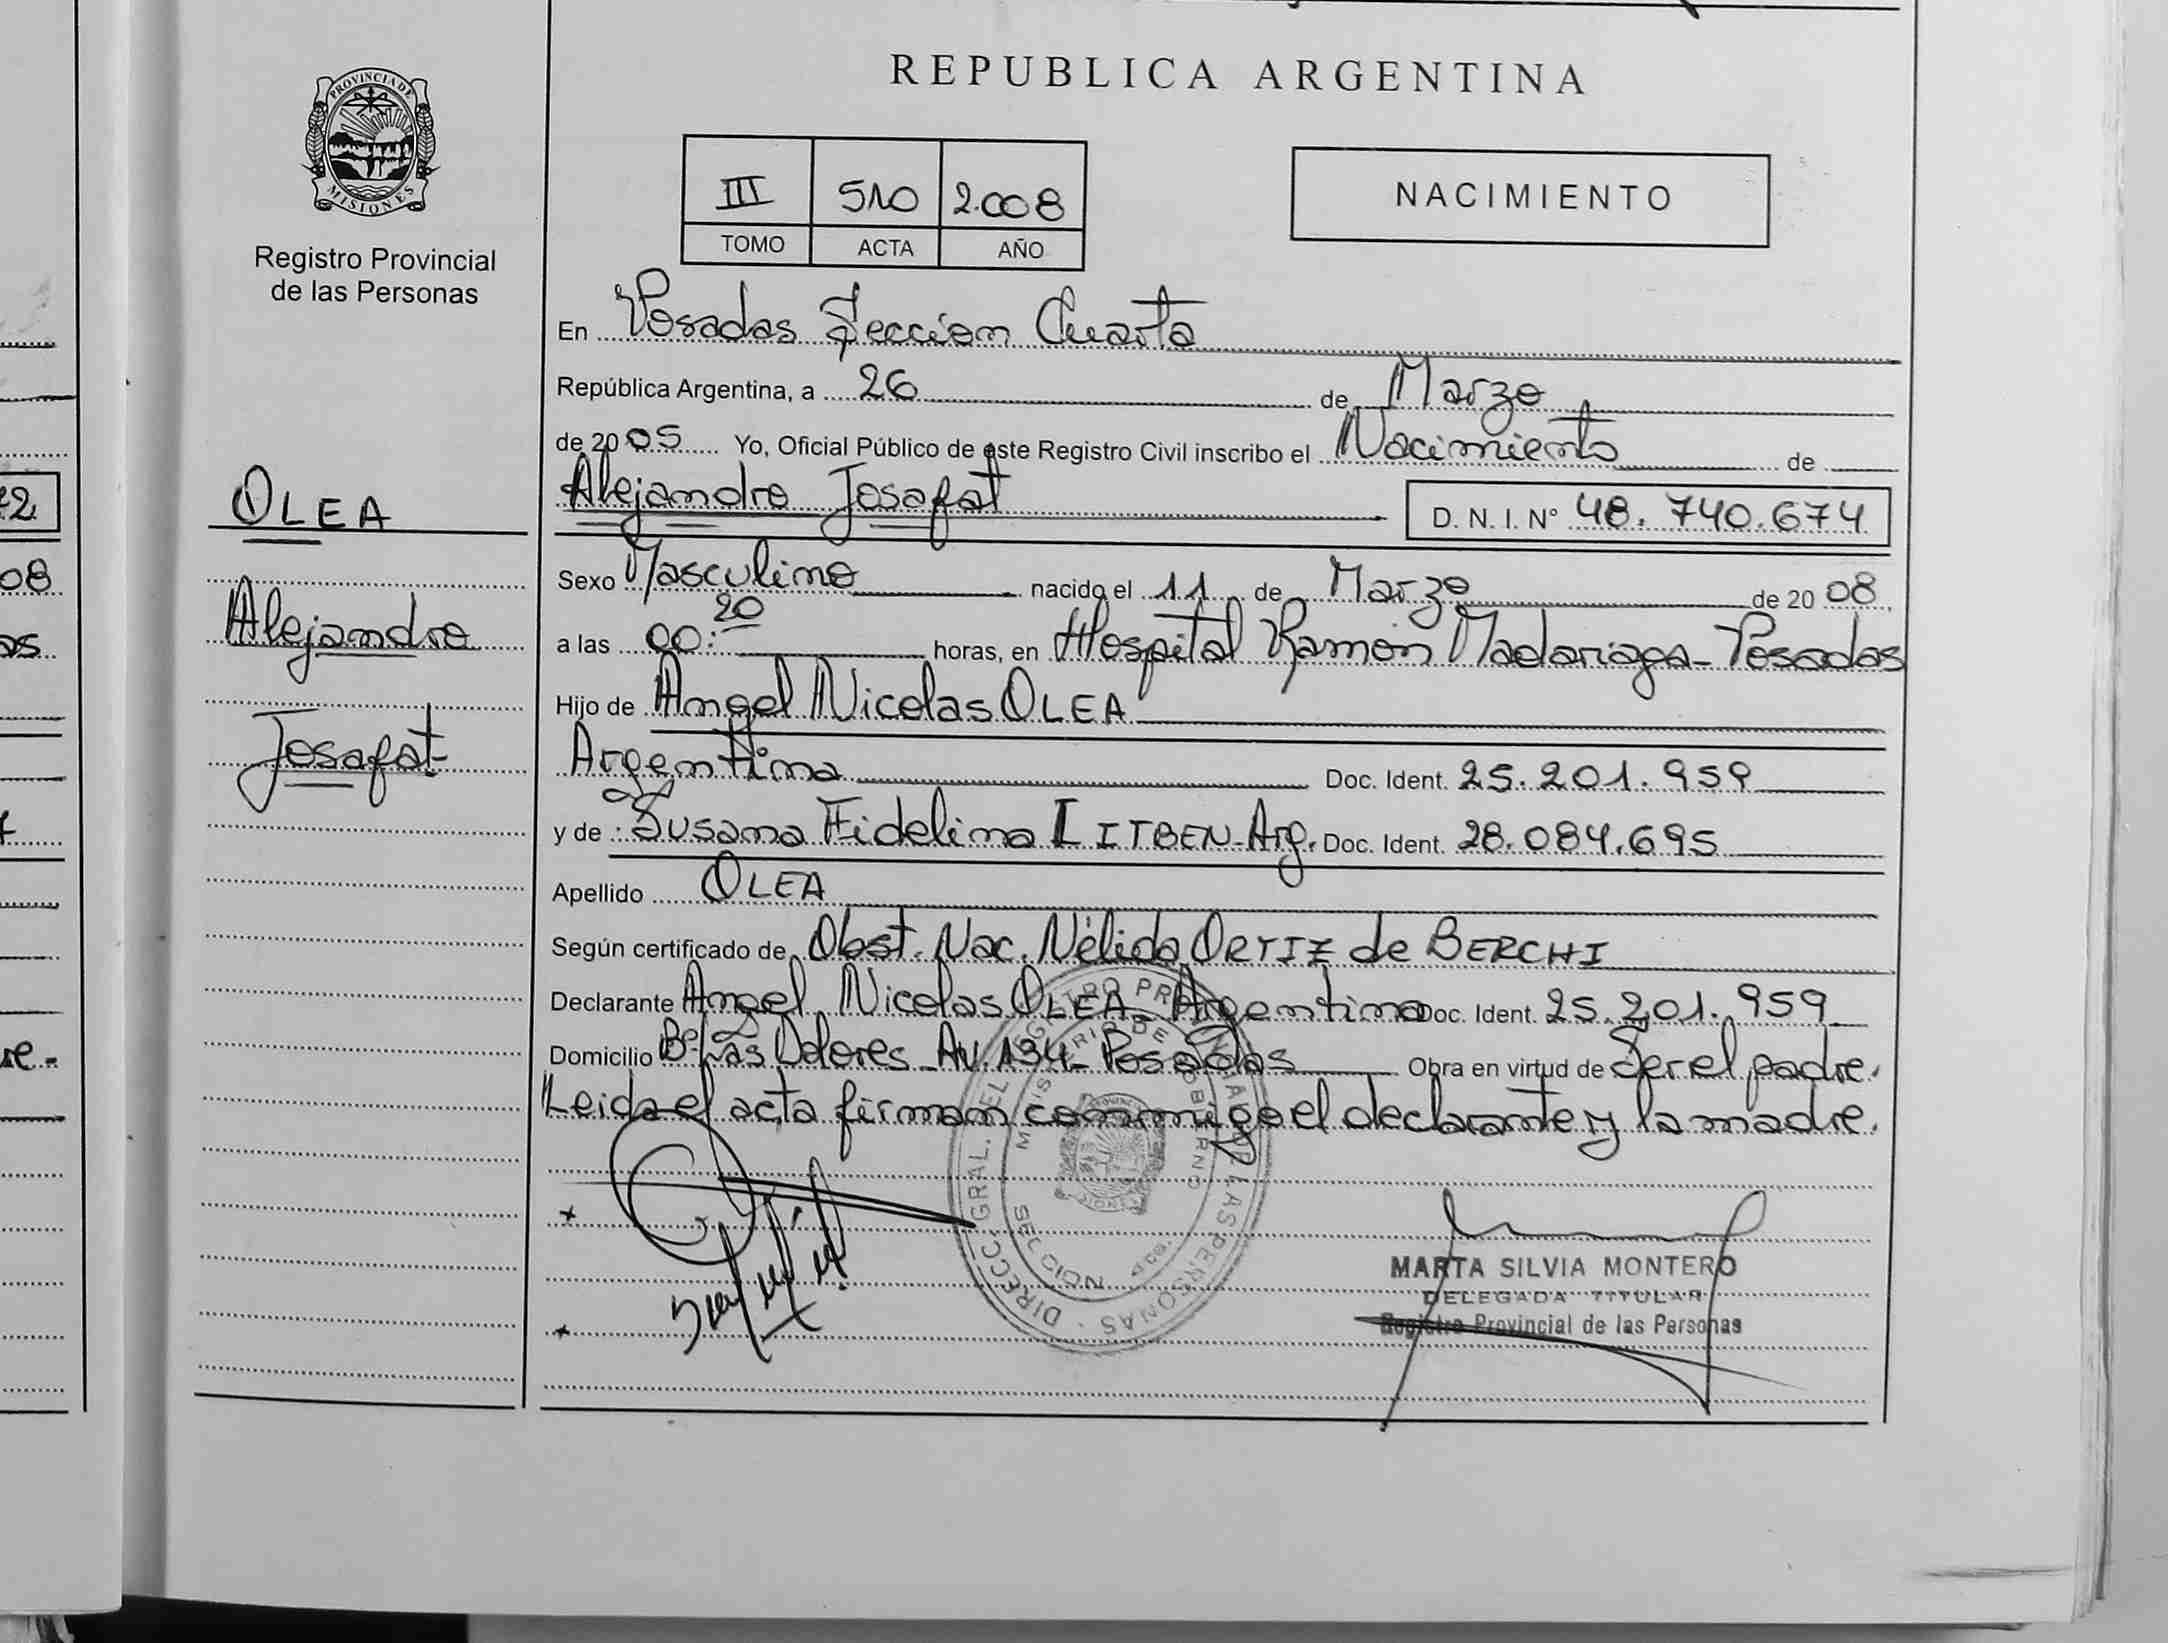 PROVINCIA DE
MISIONES
Registro Provincial
de las Personas
OLEA
Alejandro
Josafat
REPUBLICA ARGENTINA
III 510 2.008
TOMO ACTA AÑO
NACIMIENTO
En Posadas Sección Cuarta
República Argentina, a 26 de Marzo
de 2005 Yo, Oficial Público de este Registro Civil inscribo el Nacimiento de
Alejandro Josafat D. N. I. N° 48.740.674
Sexo Masculino nacido el 11 de Marzo de 2008
a las 00:20 horas, en Hospital Ramón Madariaga - Posadas
Hijo de Angel Nicolas OLEA
Argentina Doc. Ident. 25.201.959
y de Susana Fidelina LITBEN - Arg. Doc. Ident. 28.084.695
Apellido OLEA
Según certificado de Obst. Nac. Nélida ORTIZ de BERCHI
Declarante Angel Nicolas OLEA - Argentina Doc. Ident. 25.201.959
Domicilio B° Las Dolores - Av. 134 - Posadas Obra en virtud de Ser el padre.
Leida el acta firman conmigo el declarante y la madre.
MARTA SILVIA MONTERO
DELEGADA TITULAR
Registro Provincial de las Personas
72
08
as
re.-